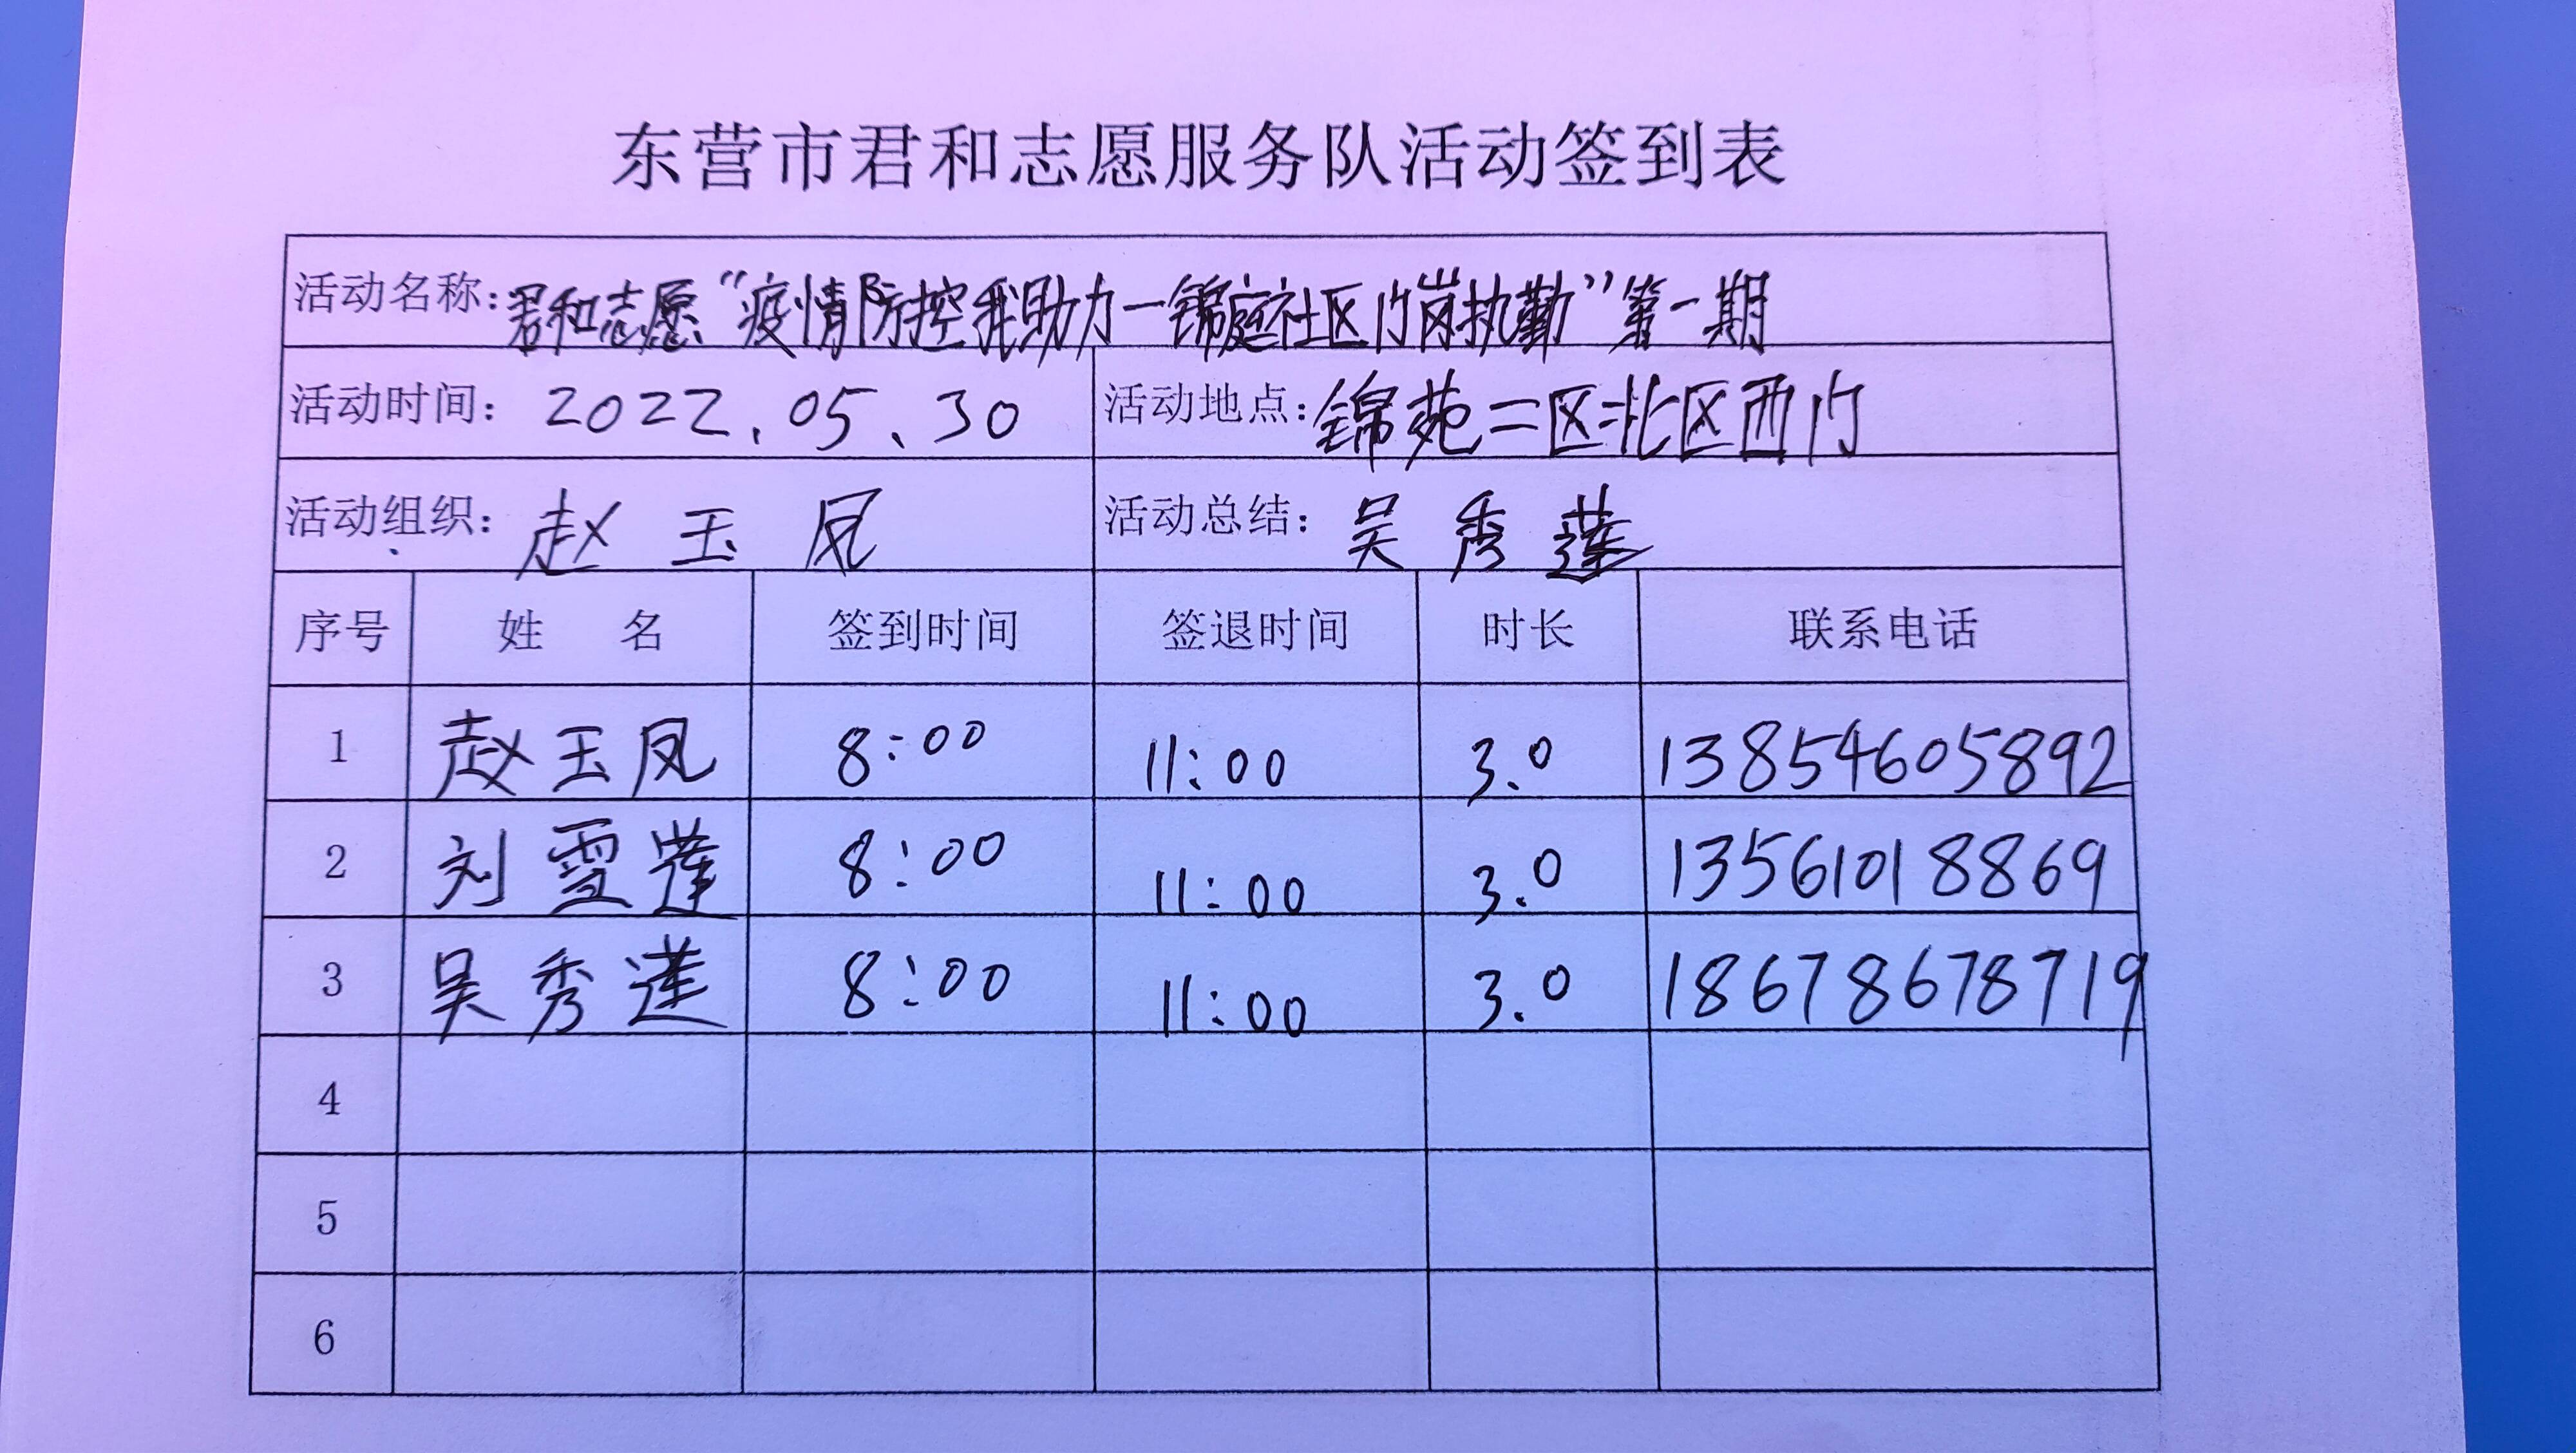 东营市君和志愿服务队活动签到表
活动名称：君和志愿“疫情防控我助力—锦庭社区门岗执勤”第一期
活动时间：2022.05.30 活动地点：锦苑二区北区西门
活动组织：赵玉凤 活动总结：吴秀莲
序号 姓名 签到时间 签退时间 时长 联系电话
1 赵玉凤 8:00 11:00 3.0 13854605892
2 刘雪莲 8:00 11:00 3.0 13561018869
3 吴秀莲 8:00 11:00 3.0 18678678719
4
5
6